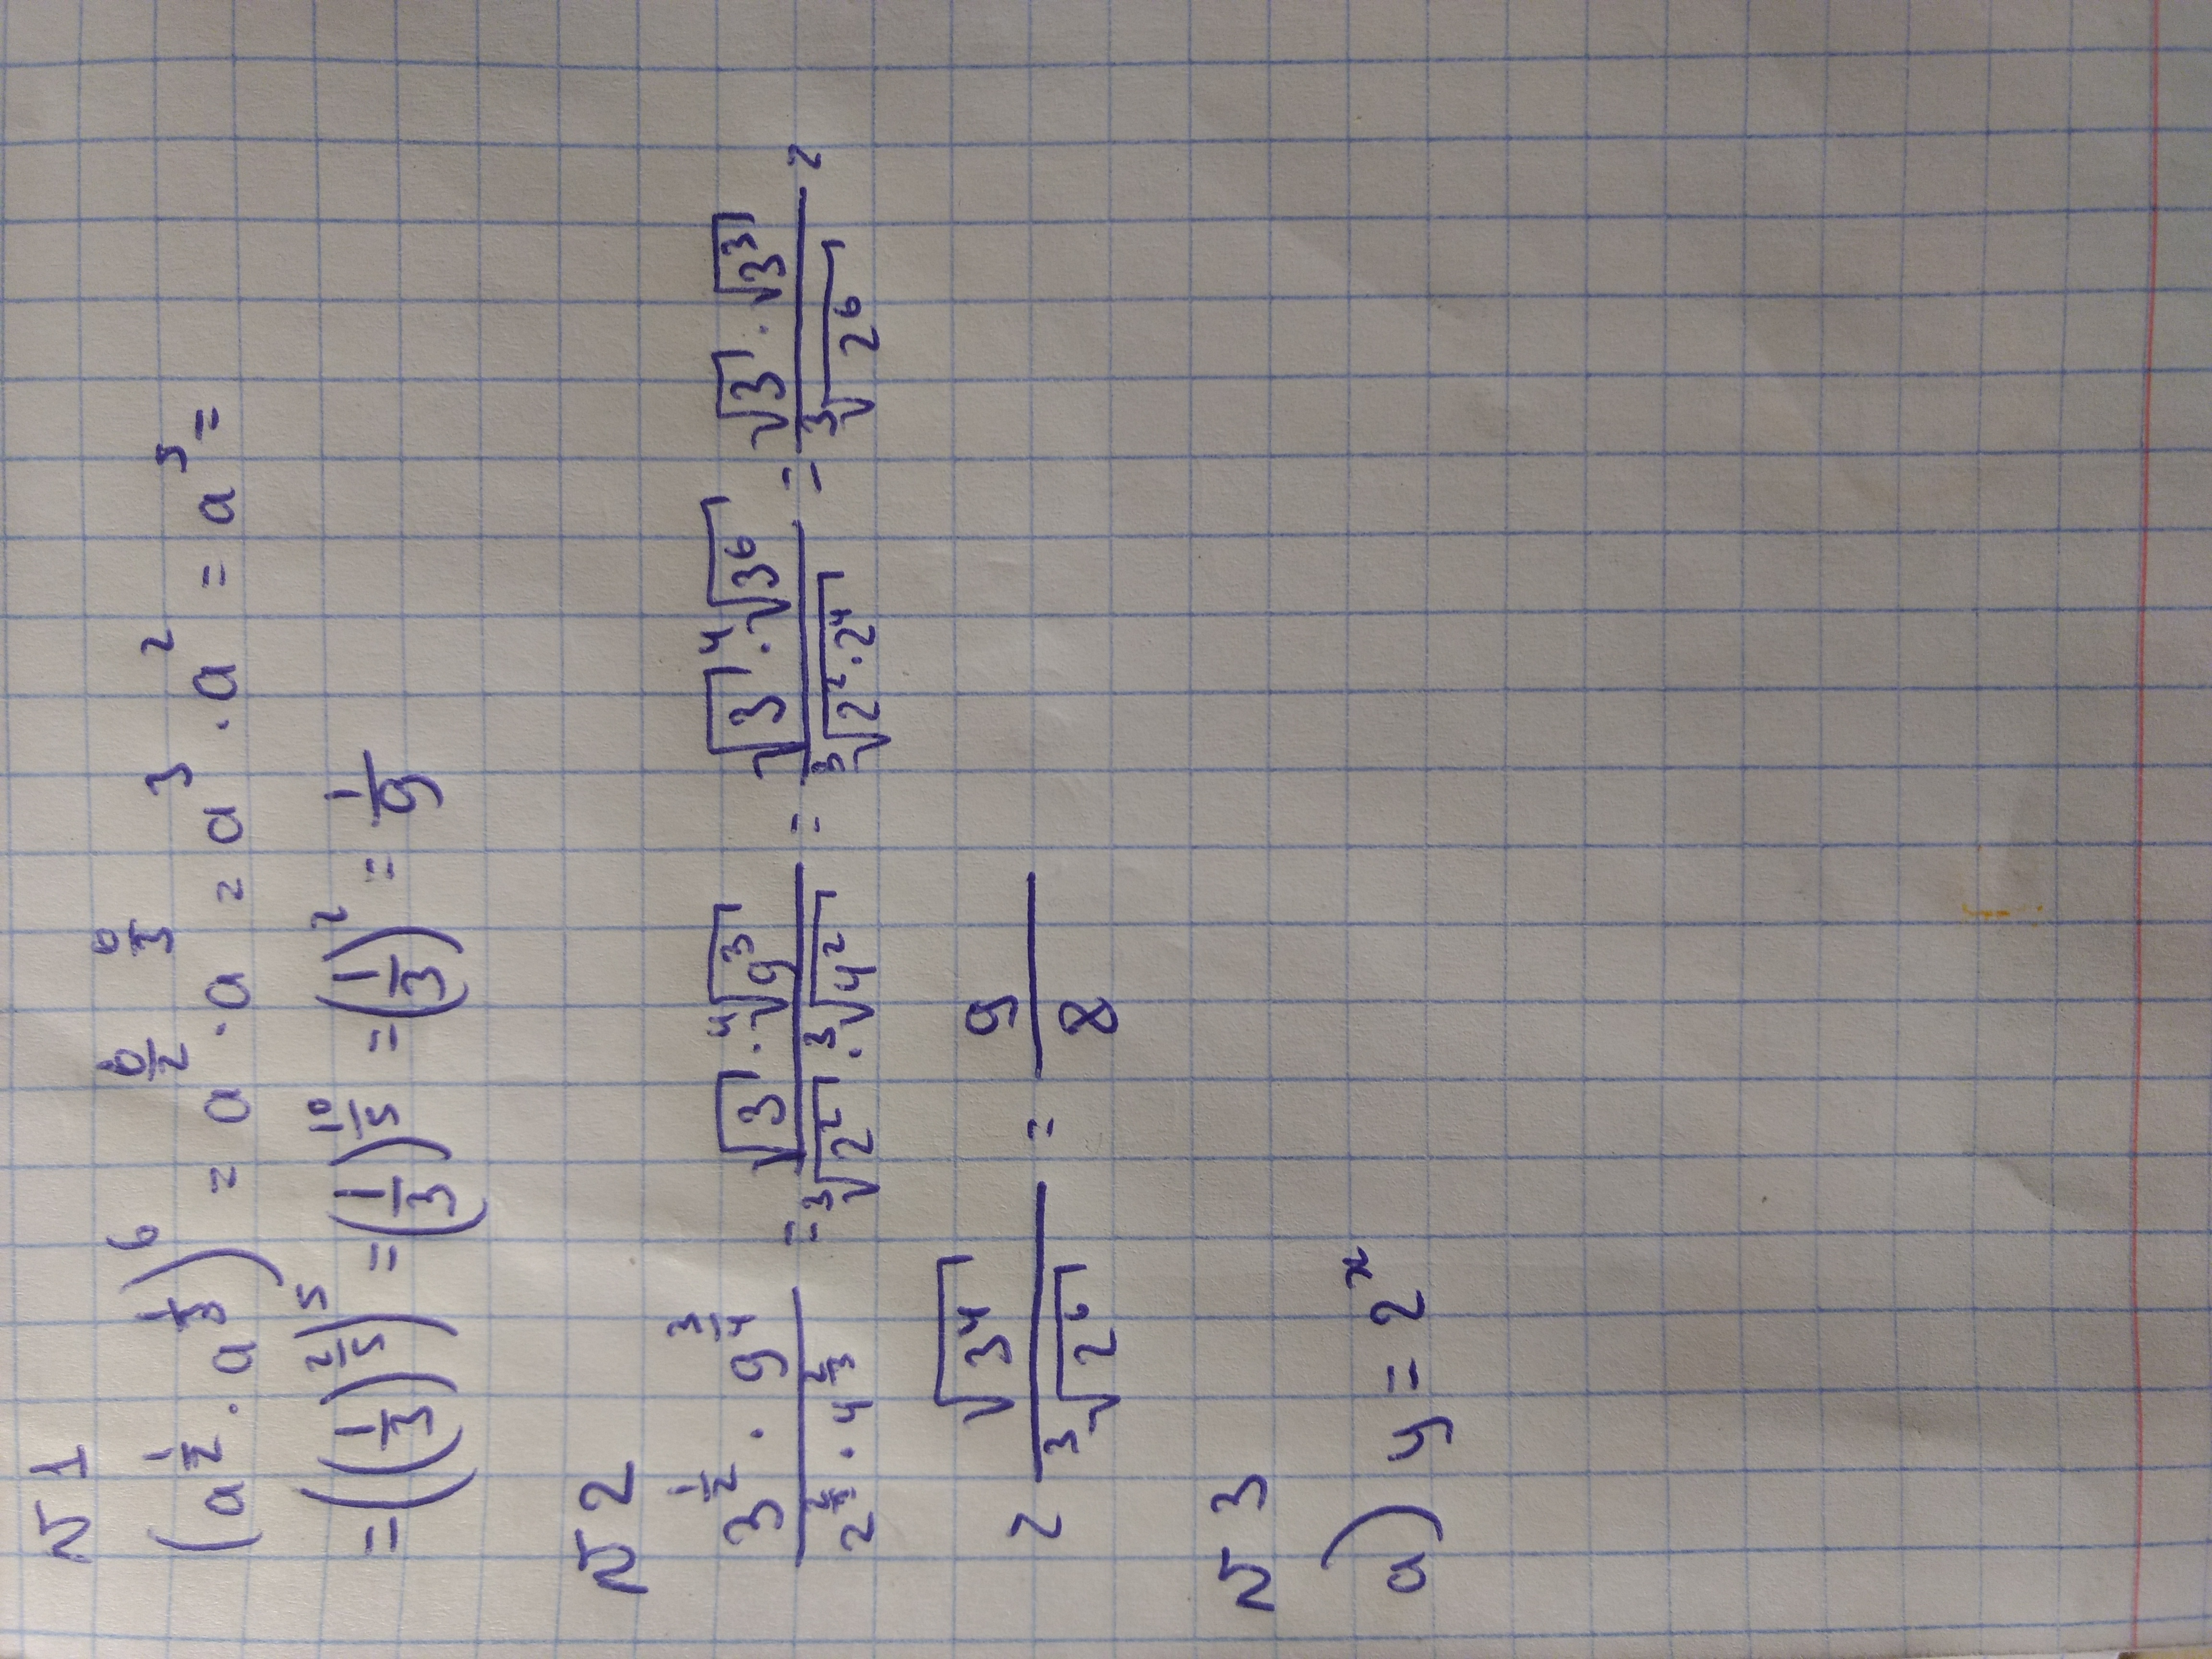 № 1
(a^{1/2} · a^{1/3})^6 = a^{6/2} · a^{6/3} = a^3 · a^2 = a^5 =
= ((1/3)^{2/5})^5 = (1/3)^{10/5} = (1/3)^2 = 1/9
№ 2
(3^{1/2} · 9^{3/4}) / (2^{2/3} · 4^{2/3}) = (√3 · ⁴√9^3) / (³√2^2 · ³√4^2) = (√3 · ⁴√3^6) / (³√(2^2 · 2^4)) = (√3 · √3^3) / (³√2^6) =
= √3^4 / ³√2^6 = 9/8
№ 3
а) y = 2^x